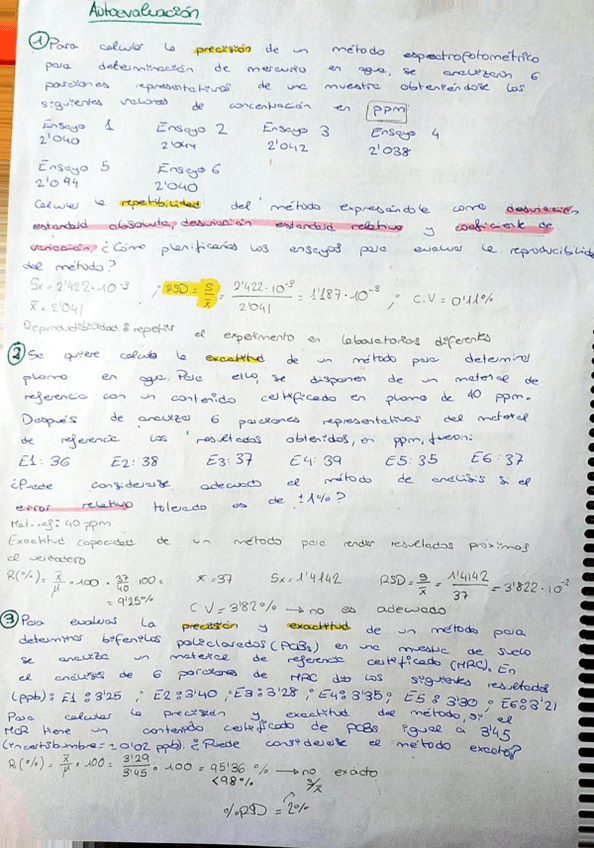 Autoevaluación
① Para calcular la precisión de un método espectrofotométrico
para determinación de mercurio en agua, se analizaron 6
porciones representativas de una muestra obteniéndose los
siguientes valores de concentración en ppm
Ensayo 1 Ensayo 2 Ensayo 3 Ensayo 4
2'040 2'044 2'042 2'038
Ensayo 5 Ensayo 6
2'044 2'040
Calcular la repetibilidad del método expresándola como desviación
estandar absoluta, desviación estandar relativa y coeficiente de
variación, ¿Cómo planificarías los ensayos para evaluar la reproducibilidad
del método?
Sx = 2'422·10⁻³ ; RSD = S/x̄ = 2'422·10⁻³/2'041 = 1'187·10⁻³ ; C.V = 0'11%
x̄ = 2'041
Reproductibilidad: repetir el experimento en laboratorios diferentes
② Se quiere calcular la exactitud de un método para determinar
plomo en agua. Para ello, se disponen de un material de
referencia con un contenido certificado en plomo de 40 ppm.
Después de analizar 6 porciones representativas del material
de referencia los resultados obtenidos, en ppm, fueron:
E1: 36 E2: 38 E3: 37 E4: 39 E5: 35 E6: 37
¿Puede considerarse adecuado el método de análisis si el
error relativo tolerado es de ±1%?
Mat. ref: 40 ppm
Exactitud capacidad de un método para rendir resultados próximos
al verdadero
R(%) = x̄/μ · 100 · 37/40 100 = x̄ = 37 Sx = 1'4142 RSD = S/x̄ = 1'4142/37 = 3'822·10⁻²
= 9'25%
CV = 3'82% → no es adecuado
③ Para evaluar la precisión y exactitud de un método para
determinar bifenilos policlorados (PCBs) en una muestra de suelo
se analiza un material de referencia certificado (MRC). En
el análisis de 6 porciones de MRC dio los siguientes resultados
(ppb): E1: 3'25 ; E2: 3'40 ; E3: 3'28 ; E4: 3'35; E5: 3'30 ; E6: 3'21
Para calcular la precisión y exactitud del método, si el
MCR tiene un contenido certificado de PCBs igual a 3'45
(incertidumbre = ±0'02 ppb). ¿Puede considerarse el método exacto?
R(%) = x̄/μ · 100 = 3'29/3'45 · 100 = 95'36 % → no exacto
<98% S/x̄
%RSD = 2%